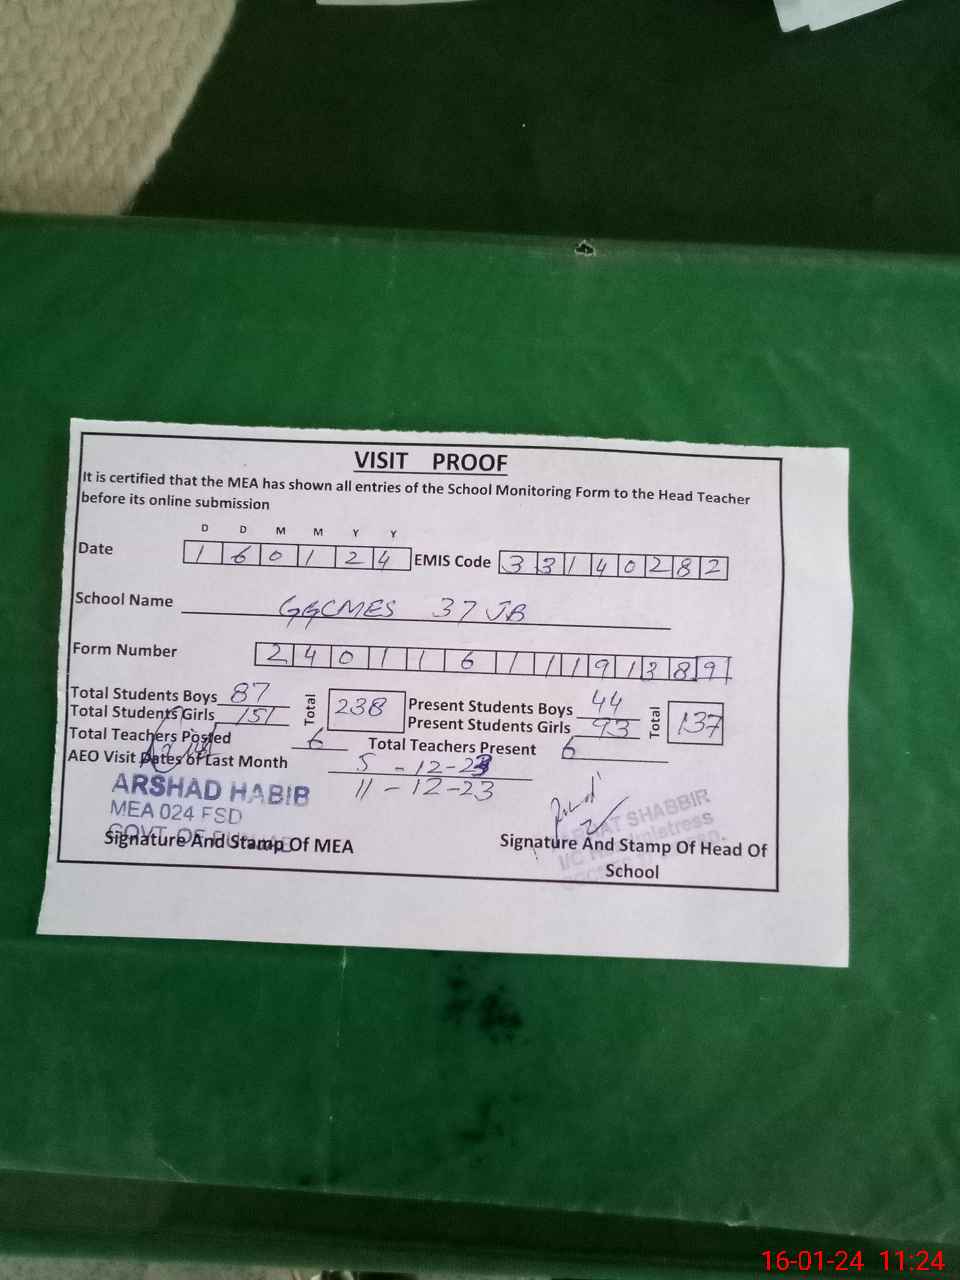 VISIT PROOF
It is certified that the MEA has shown all entries of the School Monitoring Form to the Head Teacher
before its online submission
D D M M Y Y
Date 1 6 0 1 2 4 EMIS Code 3 3 1 4 0 2 8 2
School Name GGCMES 37 JB
Form Number 2 4 0 1 1 6 1 1 1 9 1 3 8 9
Total Students Boys 87 Total 238 Present Students Boys 44 Total 137
Total Students Girls 151 Present Students Girls 93
Total Teachers Posted 6 Total Teachers Present 6
AEO Visit Dates of Last Month 5-12-23
11-12-23
ARSHAD HABIB
MEA 024 FSD
GOVT. OF
SHABBIR
Signature And Stamp Of MEA Signature And Stamp Of Head Of
School
16-01-24 11:24